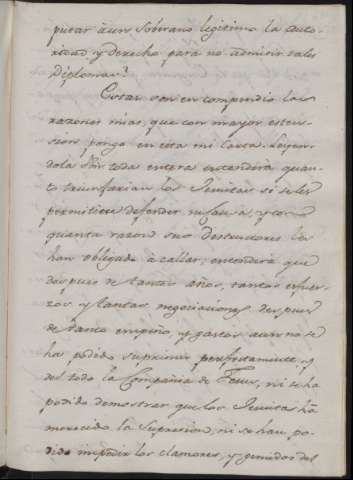 putar à un Sobrano legitimo la auto-
ridad y derecho para no admitir tales
Diplomas?
Estas son en compendio las
razones mias, que con mayor exten-
sion pongo en esta mi Carta. Leyen-
dola S.or toda entera entenderà quan-
to triunfarian los Jesuitas si se les
permitiese defender su causa, y con
quanta razon sus destructores les
han obligado a callar; entenderà que
despues de tantos años, tantos esfuer-
zos, y tantas negociaciones, despues
de tanto empeño, y gastos aun no se
ha podido suprimir perfectamente, y
del todo la Compañia de Jesus, ni se ha
podido demostrar que los Jesuitas han
merecido la Supresion, ni se han po-
dido impedir los clamores, y gemidos del